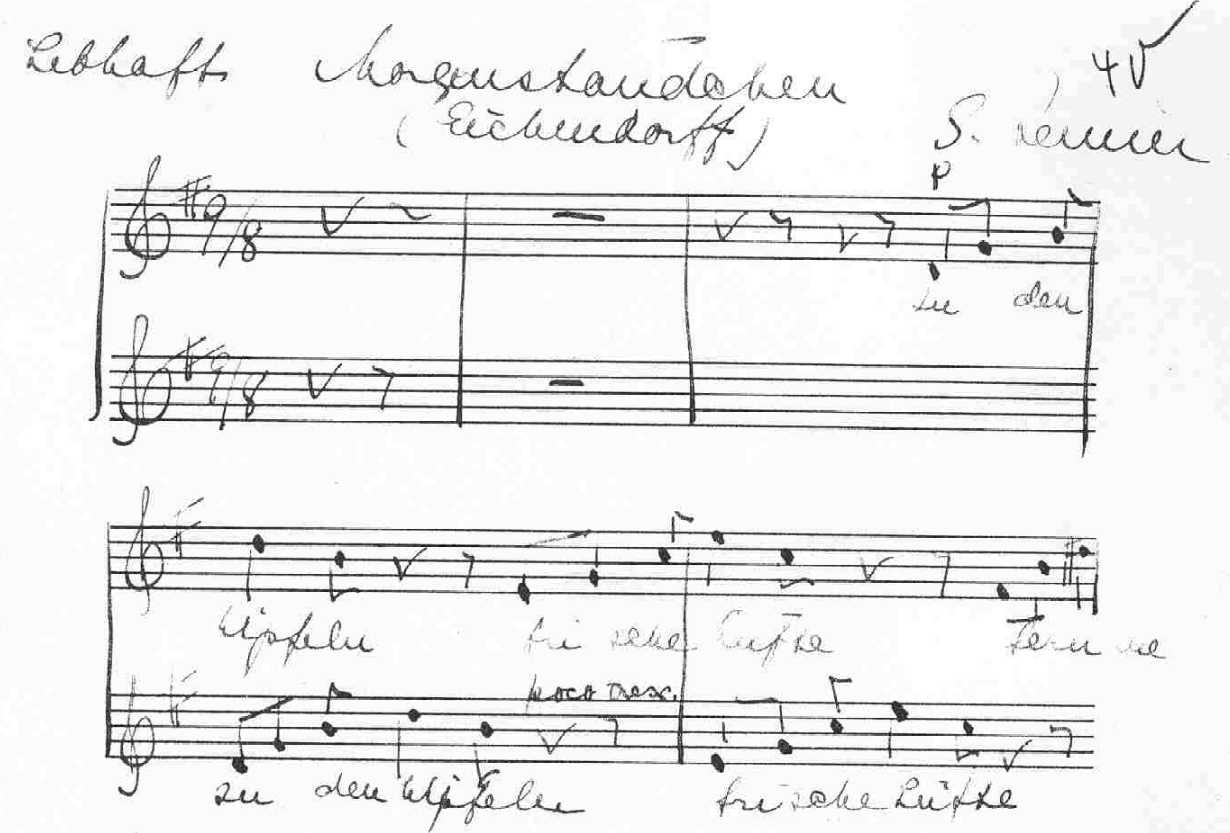 Lebhaft Morgenständchen 4V
(Eichendorff)
S.
p
9/8
zu den
9/8
Wipfeln fri sche Lüfte fern
poco cresc.
zu den Wipfeln frische Lüfte